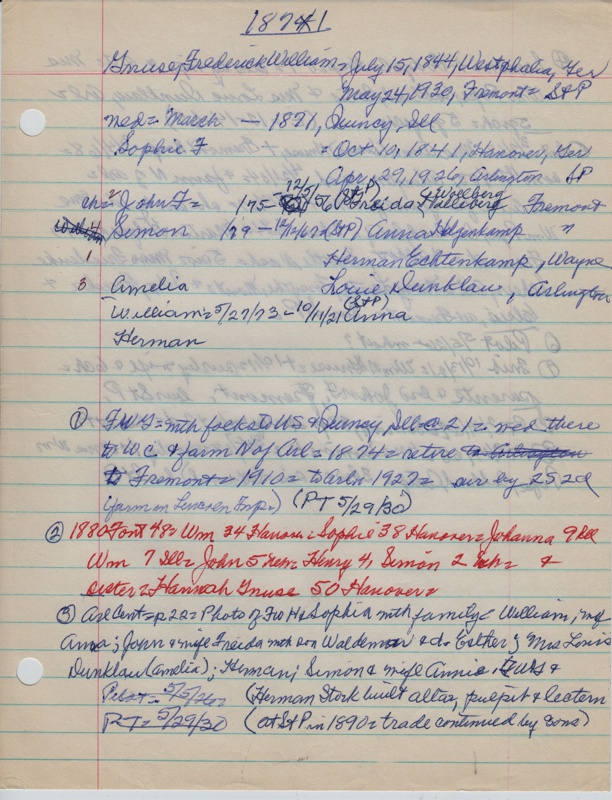 1874
Gnuse, Frederick William = July 15, 1844, Westphalia, Ger
May 24, 1930, Fremont = St P
med = March - 1871, Quincy, Ill
Sophie F = Oct 10, 1841, Hanover, Ger
Apr, 29, 1926, Arlington St P
ch = 2 John F = 175 - 12/5/56 (St P) Freida Woelberg Fremont
Simon 179 - (St P) Anna "
1 Herman Echtenkamp, Wayne
3 Amelia Louie Dunklau, Arlington
William = 5/27/73 - 10/11/21 (St P) Anna
Herman
① FWG = mth folks to US & Quincy, Ill @ 21 = med there
to W.C. & farm N of Arl = 1874 = retire
to Fremont = 1910 = to Arln 1927 = sur by 2S 2d
(farm on Lincoln Twp.) (PT 5/29/30)
② 1880 Font 48 = Wm 34 Hanov : Sophie 38 Hanover = Johanna 9 Ill
Wm 7 Ill = John 5 neb = Henry 4, Simon 2 neb = &
sister = Hannah Gnuse 50 Hanover =
③ Arl Cent = p 22 = Photo of FW & Sophia mth family = William, mf
Anna ; John & mife Freida mth son Waldemar & da Esther ; Mrs Louis
Dunklau (Amelia) ; Herman ; Simon & mife Annie . &
Pilot = 5/5/26 = (Herman Stork built altar, pulpit & lectern
PT = 5/29/30 (at St P in 1890 = trade continued by sons)